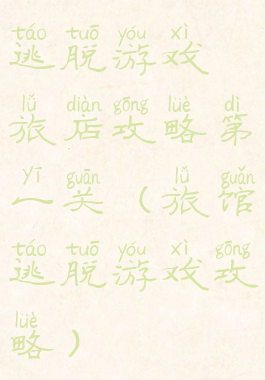 táo tuō yóu xì
逃脱游戏
lǚ diàn gōng lüè dì
旅店攻略第
yī guān lǚ guǎn
一关（旅馆
táo tuō yóu xì gōng
逃脱游戏攻
lüè
略）